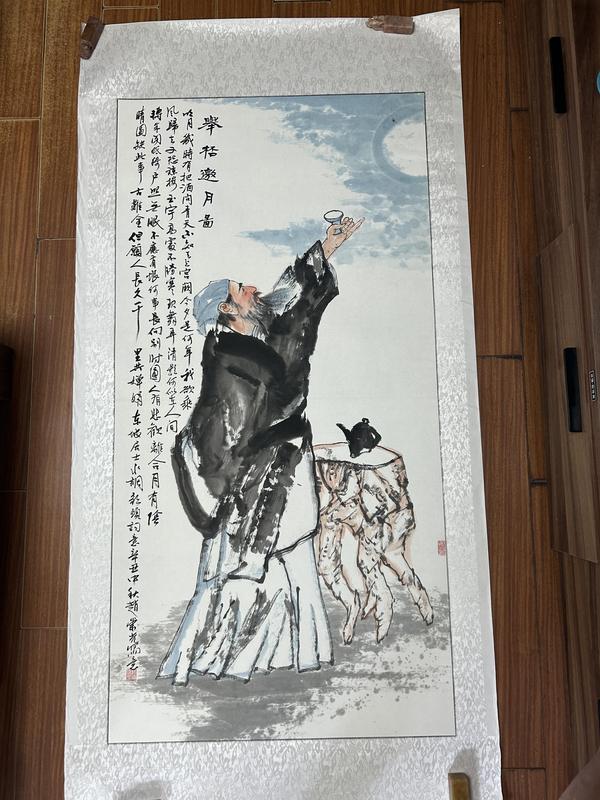 舉桮邀月啚
明月幾時有把酒問青天不知天上宮闕今夕是何年我欲乘
風歸去又恐瓊樓玉宇高處不勝寒起舞弄清影何似在人間
轉朱閣低綺戶照無眠不應有恨何事長向別時圓人有悲歡離合月有陰
晴圓缺此事古難全但願人長久千里共嬋娟東坡居士水調歌頭詞意辛丑中秋趙榮光寫意